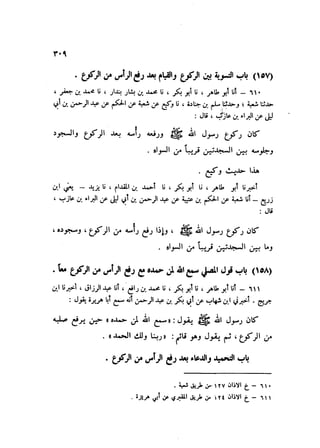 ٣٠٩
(١٥٧) باب التسوية بين الركوع والقيام بعد رفع الرأس من الركوع .
٦١٠ — أنا أبو طاهر ، نا أبو بكر ، نا محمد بن بشار ، نا محمد بن جعفر ،
حدثنا شعبة ؛ وحدثنا سلم بن جنادة ، نا وكيع عن شعبة عن الحكم عن عبد الرحمن بن أبي
ليلى عن البراء بن عازب ، قال :
كان ركوع رسول الله ﷺ ورفعه رأسه بعد الركوع والسجود
وجلوسه بين السجدتين قريباً من السواء .
هذا حديث وكيع .
أخبرنا أبو طاهر ، نا أبو بكر ، نا أحمد بن المقدام ، نا يزيد — يعني ابن
زريع — نا شعبة عن الحكم بن عتيبة عن عبد الرحمن بن أبي ليلى عن البراء بن عازب ،
قال :
كان ركوع رسول الله ﷺ ، وإذا رفع رأسه من الركوع ، وسجوده ،
وما بين السجدتين قريباً من السواء .
(١٥٨) باب قول المصلي سمع الله لمن حمده مع رفع الرأس من الركوع معاً .
٦١١ — أنا أبو طاهر ، نا أبو بكر ، نا محمد بن رافع ، أنا عبد الرزاق ، أخبرنا ابن
جريج ، أخبرني ابن شهاب عن أبي بكر بن عبد الرحمن أنه سمع أبا هريرة يقول :
كان رسول الله ﷺ يقول : «سمع الله لمن حمده» حين يرفع صلبه
من الركوع ، ثم يقول وهو قائم : «ربنا ولك الحمد» .
باب التحميد والدعاء بعد رفع الرأس من الركوع .
٦١٠ — خ الأذان ١٢٧ من طريق شعبة .
٦١١ — خ الأذان ١٢٤ من طريق المقبري عن أبي هريرة .